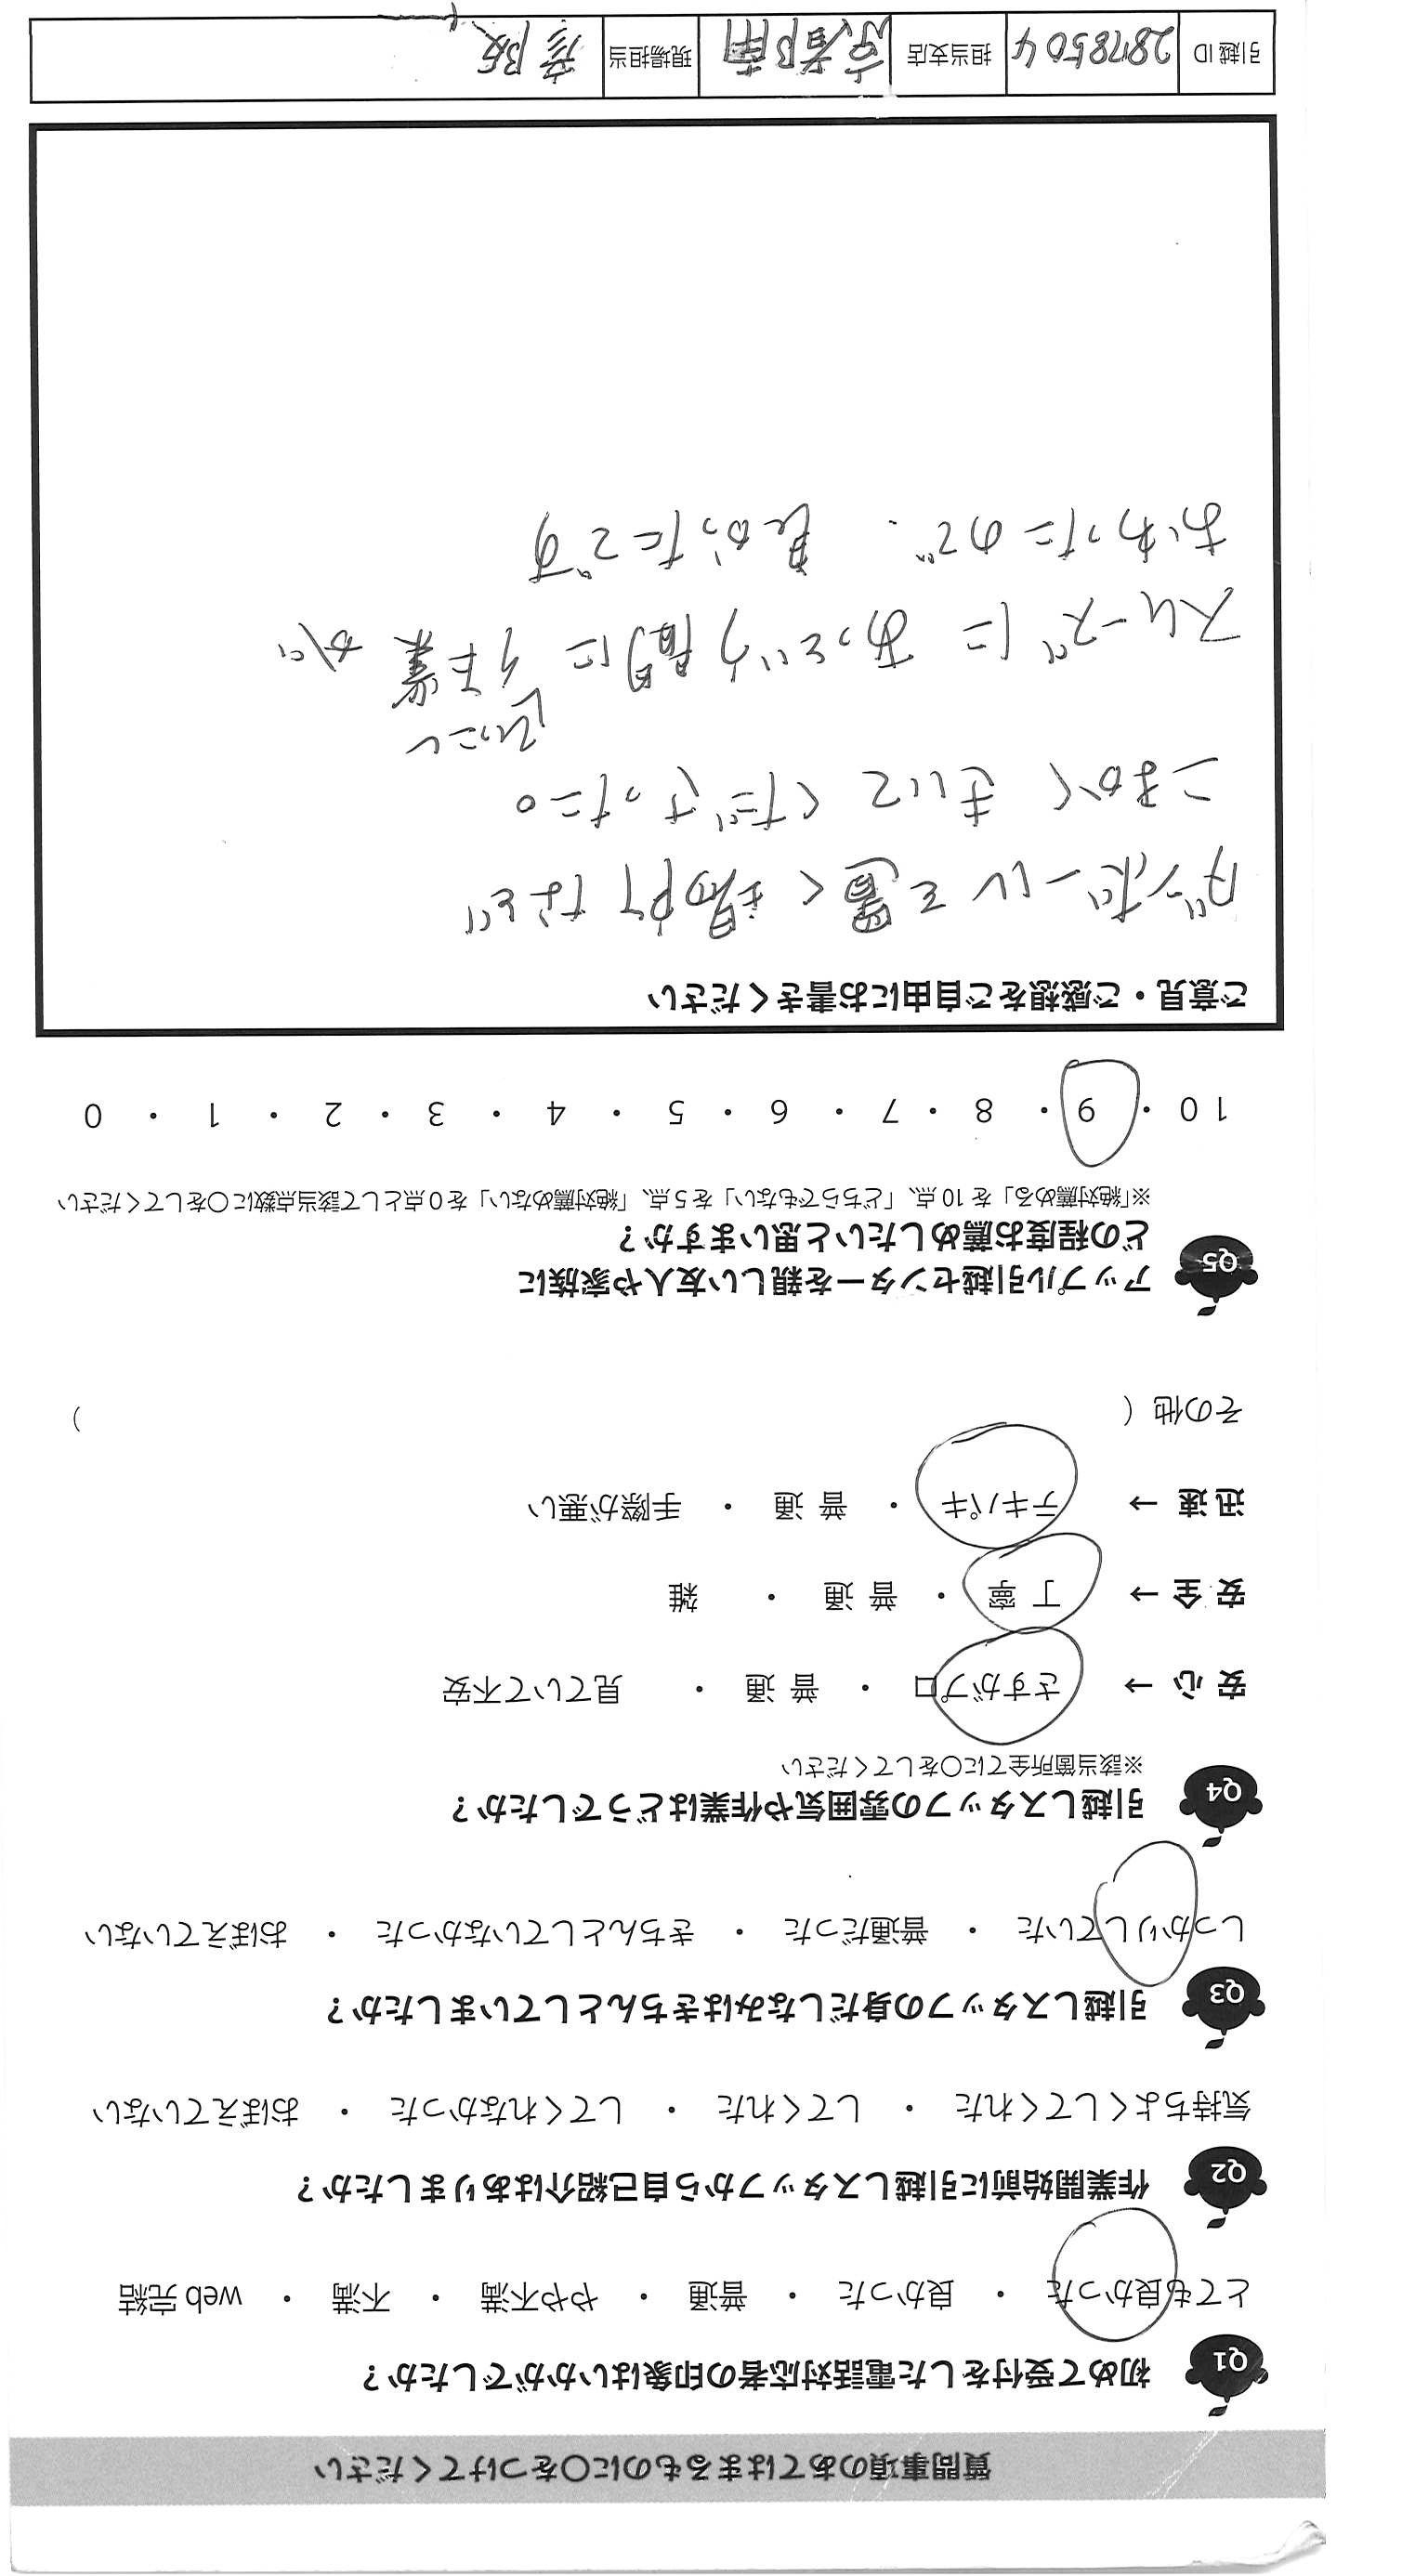 質問事項のあてはまるものに○をつけてください
Q1 初めて受付をした電話対応者の印象はいかがでしたか？
とても良かった ・ 良かった ・ 普通 ・ やや不満 ・ 不満 ・ web 完結
Q2 作業開始前に引越しスタッフから自己紹介はありましたか？
気持ちよくしてくれた ・ してくれた ・ してくれなかった ・ おぼえていない
Q3 引越しスタッフの身だしなみはきちんとしていましたか？
しっかりしていた ・ 普通だった ・ きちんとしていなかった ・ おぼえていない
Q4 引越しスタッフの雰囲気や作業はどうでしたか？
※該当箇所全てに○をしてください
安 心 → さすがプロ ・ 普 通 ・ 見ていて不安
安 全 → 丁 寧 ・ 普 通 ・ 雑
迅 速 → テキパキ ・ 普 通 ・ 手際が悪い
その他（ ）
Q5 アップル引越センターを親しい友人や家族に
どの程度お薦めしたいと思いますか？
※「絶対薦める」を 10 点、「どちらでもない」を 5 点、「絶対薦めない」を 0 点として該当点数に○をしてください
10 ・ 9 ・ 8 ・ 7 ・ 6 ・ 5 ・ 4 ・ 3 ・ 2 ・ 1 ・ 0
ご意見・ご感想をご自由にお書きください
ダンボールを置く場所など
こまかく きいて くださった。
ひっこし
スムーズに あっという間に 作業 が
おわったので、 良かったです
引越 ID 2878504 担当支店 京都南 現場担当